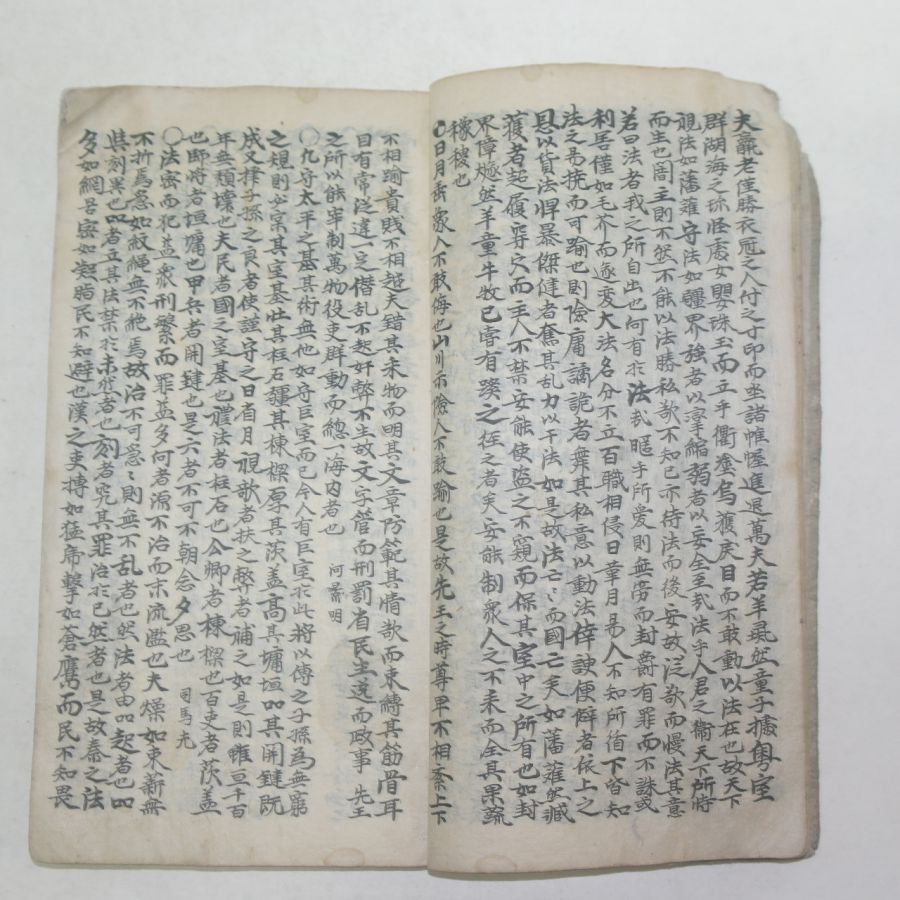 夫羸老僅勝衣冠之人付之寸印而坐諸帷幄進退萬夫若羊䑕然童子據奧室
群湖海之珎怪處女嬰珠玉而立乎衢塗烏獲戾目而不敢動以法在也故天下
視法如藩蘺守法如疆界強者以淳縮弱者以安全至㢤法乎人君之衛天下所恃
而生也闇主則不然不能以法勝私欲不知己亦待法而後安故從欲而慢法其意
若曰法者我之所自出也何有於法㢤暱乎所愛則無旁而封爵有罪而不誅或
利害僅如毛芥而遂変大法名分不立百職相侵日葦月易人不知所循下皆知
法之易撓而可踰也則險庸譎詭者舞其私意以動法倖諛便辟者依上之
恩以貨法悍暴傑健者奮其乱力以干法如是故法亡〻而國亡矣如藩蘺然臧
獲者起履穿穴而主人不禁安能使盗之不窺而保其室中之所有也如封
界偉燧然羊童牛牧已嘗有蹊之徃之者矣安能制衆人之不来而全其果蔬
稼穡也
○日月垂象人不敢侮也山川示險人不敢踰也是故先王之時尊卑不相紊上下
不相踰貴賎不相超夫錯其采物而明其文章防範其情欲而束縛其筋骨耳
目有常從違一定僭乱不起奸弊不生故文字管而刑罰省民生遂而政事 先王
之所以能宰制萬物役吏群動而總一海内者也 何景明
○凡守太平之基其術無他如守巨室而已今人有巨室於此將以傳之子孫為無窮
之規則必宗其室基壮其柱石彊其棟樑厚其茨盖高其墉垣固其開鍵既
成又擇子孫之良者使謹守之日省月視欹者扶之弊者補之如是則雖亘千百
年無頹壞也夫民者國之室基也禮法者柱石也公卿者棟樑也百吏者茨盖
也即將者垣墉也甲兵者開鍵也是六者不可不朝念夕思也 司馬光
○法密而犯益衆刑繁而罪益多何者濁不治而末流濫也夫燥如束薪無
不折焉急如紋縄無不絶焉故治不可急〻則無不乱者也然法者由起者也
其刻異也者立其法禁於未然者也刻者究其罪治於已然者也是故秦之法
夕如網呂密如凝脂民不知避也漢之吏搏如猛席擊如蒼鷹而民不知畏